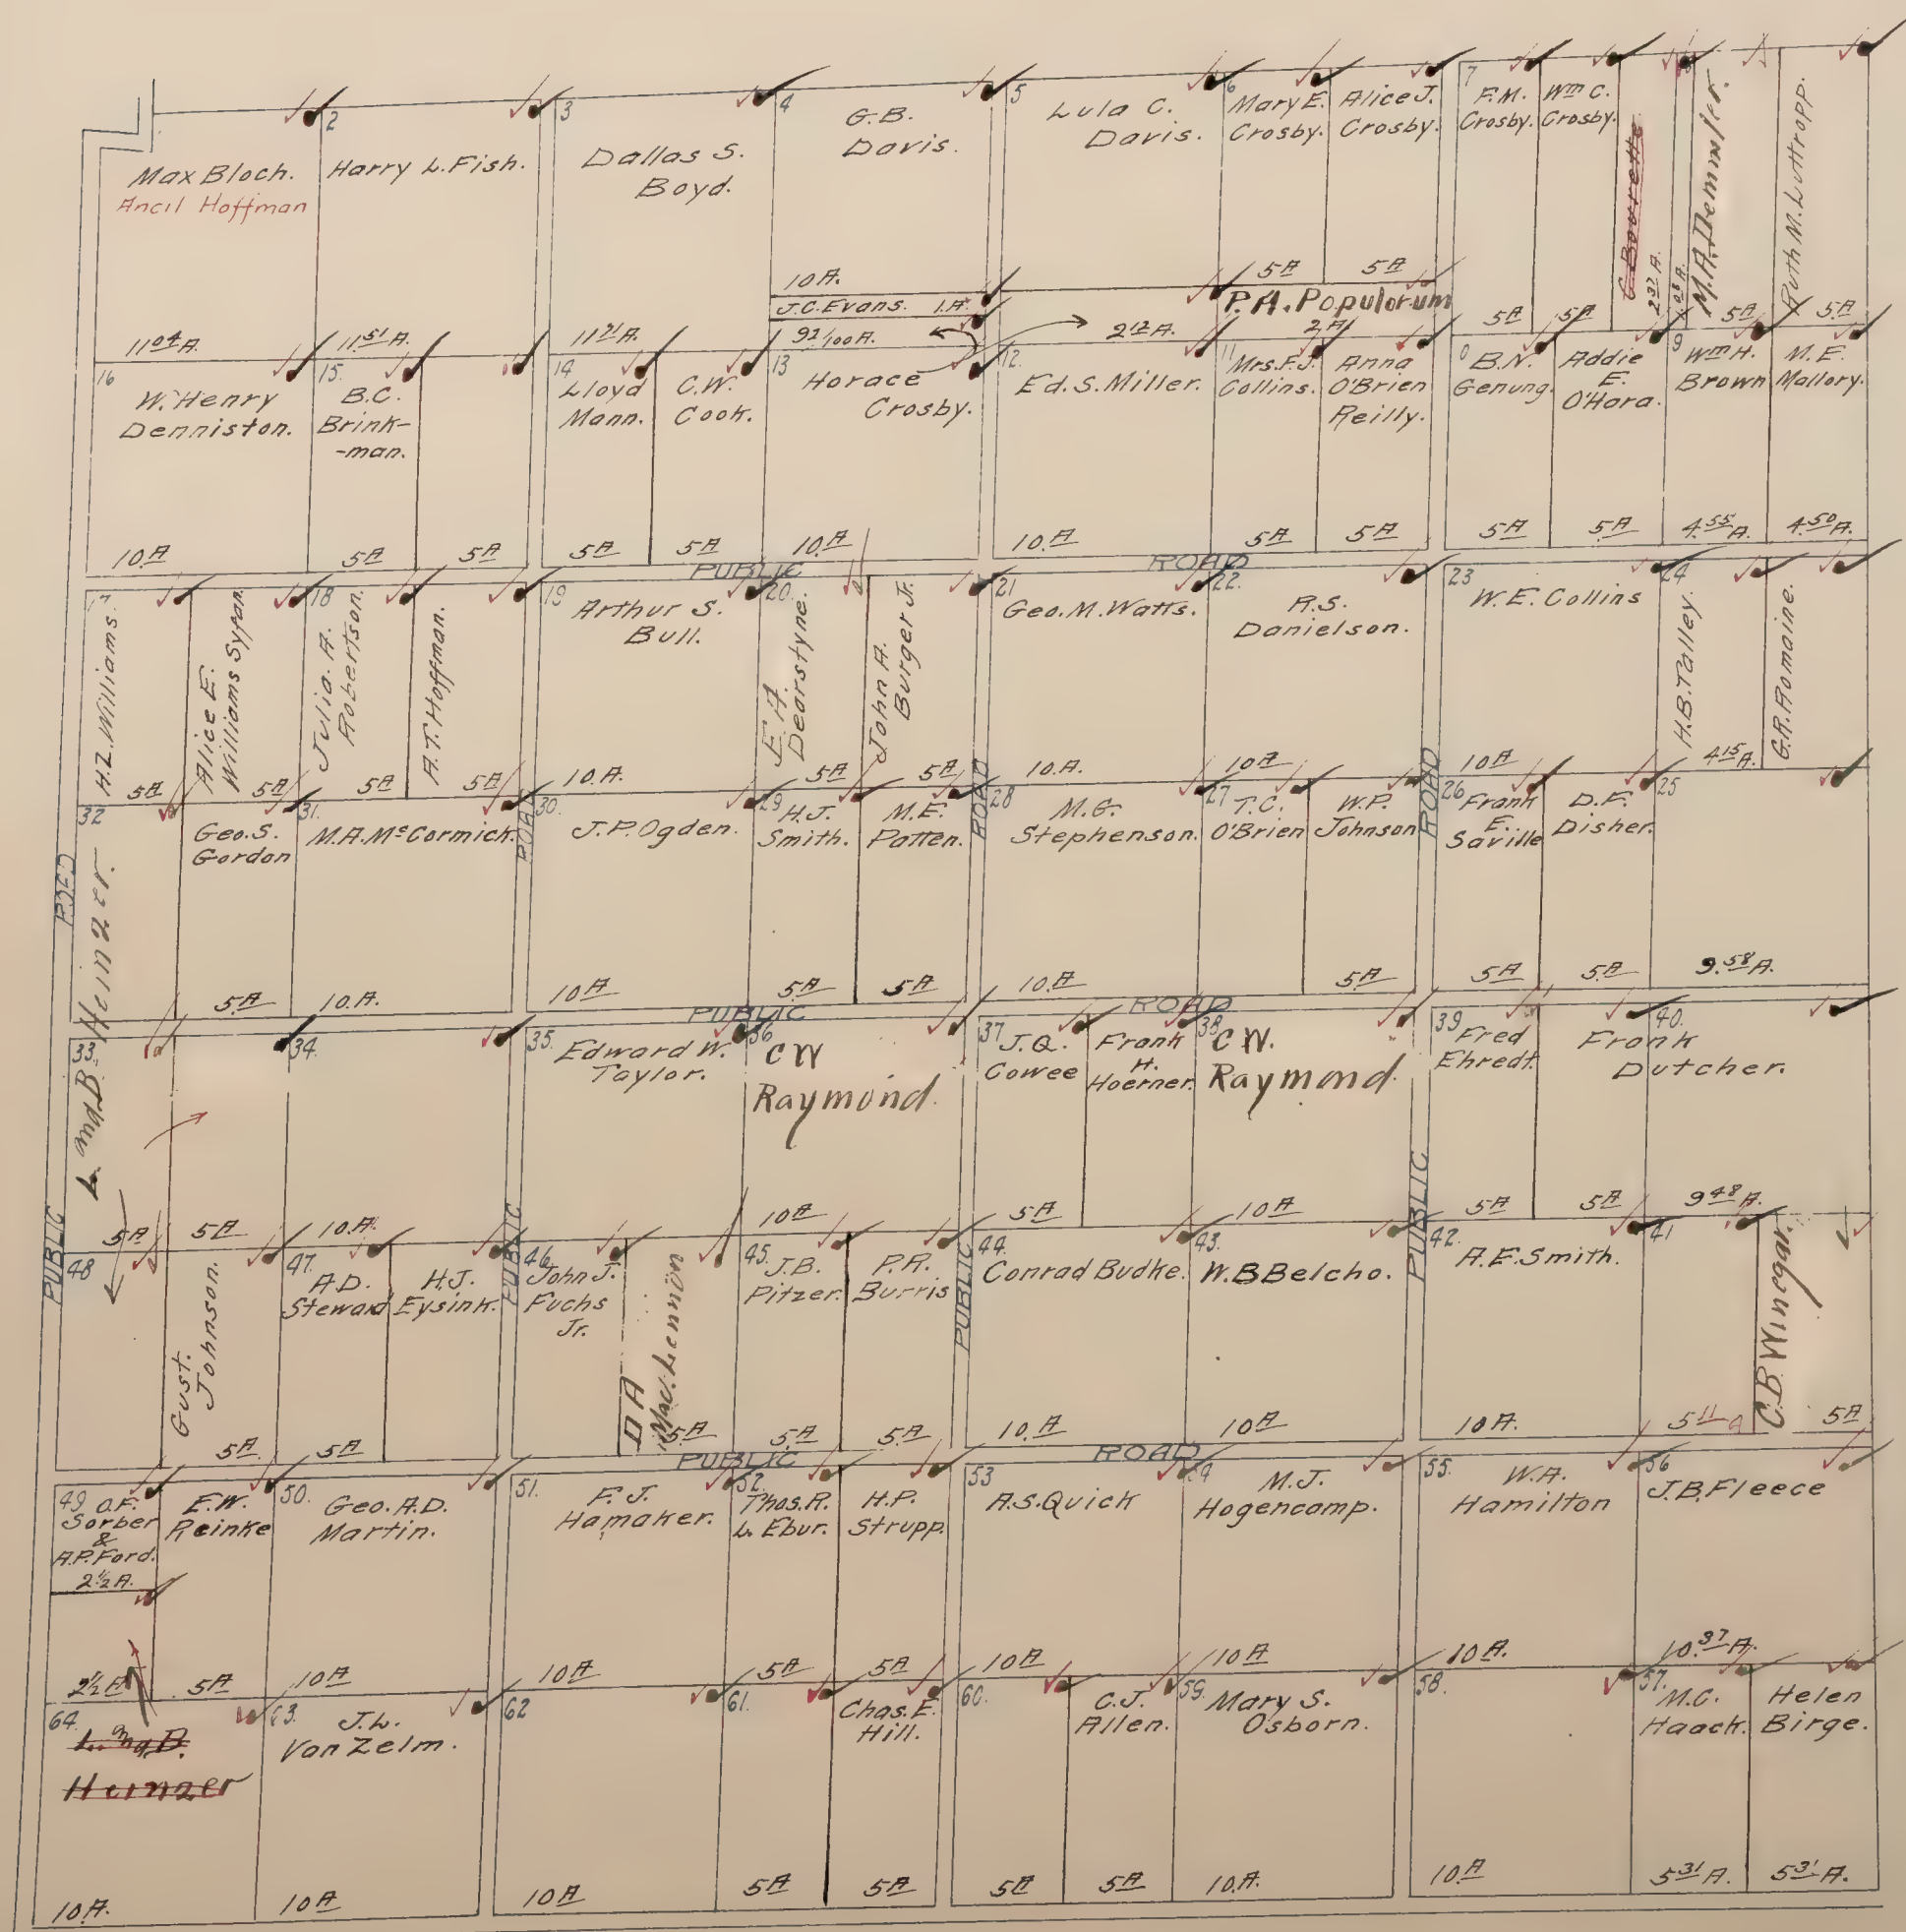 2
3
4
5
6
7
Max Bloch.
Ancil Hoffman
Harry L. Fish.
Dallas S.
Boyd.
G.B.
Davis.
Lula C.
Davis.
Mary E.
Crosby.
Alice J.
Crosby.
F.M.
Crosby.
Wm C.
Crosby.
C Bourette
M.A. Demmler.
Ruth M. Luttropp.
10 A.
J.C. Evans. 1. A.
92/100 A.
5 A
5 A
P.A. Populorum
11 04 A.
11 51 A.
11 21 A.
2 12 A.
2 A
5 A
5 A
2 37 A.
5 A
5 A.
16
W. Henry
Denniston.
15.
B.C.
Brink-
-man.
14
Lloyd
Mann.
C.W.
Cook.
13
Horace
Crosby.
12.
Ed. S. Miller.
11
Mrs. F. J.
Collins.
Anna
O'Brien
Reilly.
0
B.N.
Genung.
Addie
E.
O'Hara.
9
Wm H.
Brown
M.E.
Mallory.
10 A
5 A
5 A
5 A
5 A
10. A
10. A
5 A
5 A
5 A
5 A
4.55 A.
4.50 A.
PUBLIC
ROAD
17
H.Z. Williams.
Alice E.
Williams Syfan.
18
Julia. A.
Robertson.
A.T. Hoffman.
19
Arthur S.
Bull.
20.
E. A.
Dearstyne.
John A.
Burger Jr.
21
Geo. M. Watts.
22.
R.S.
Danielson.
23
W. E. Collins
24
H.B. Talley.
G.R. Romaine.
5 A
5 A
5 A
5 A
10. A.
5 A
5 A
10. A.
10 A
10 A
4 15 A.
32
L. and B. Heinzer.
Geo. S.
Gordon
31.
M.A. McCormick.
ROAD
30.
J.P. Ogden.
29
H.J.
Smith.
M.E.
Patten.
ROAD
28
M.G.
Stephenson.
27
T.C.
O'Brien
W.P.
Johnson
ROAD
26
Frank
E.
Saville
D.F.
Disher.
25
5 A
10. A.
10 A
5 A
5 A
10. A
5 A
5 A
5 A
9.58 A.
PUBLIC
ROAD
33.
34.
35.
Edward W.
Taylor.
36
C W
Raymond.
37
J.Q.
Cowee
Frank
H.
Hoerner.
38
C W.
Raymond.
39
Fred
Ehredt.
40.
Frank
Dutcher.
5 A
5 A
10. A.
10 A
5 A
10 A
5 A
5 A
9 48 A.
PUBLIC
48
Gust.
Johnson.
47.
A.D.
Steward
H.J.
Eysink.
PUBLIC
46
John J.
Fuchs
Jr.
D A
MacLennon
45.
J.B.
Pitzer.
P.R.
Burris
PUBLIC
44.
Conrad Budke.
43.
W.B Belcho.
PUBLIC
42.
A.E. Smith.
41
C.B. Winegar.
5 A
5 A
5 A
5 A
5 A
10. A
10 A
10 A.
5 11
5 A
PUBLIC
ROAD
49
O.F.
Sorber
&
A.P. Ford.
2 1/2 A.
E.W.
Reinke
50.
Geo. A.D.
Martin.
51.
F. J.
Hamaker.
52.
Thos. R.
L. Ebur.
H.P.
Strupp.
53
A.S. Quick
54
M.J.
Hogencamp.
55.
W.A.
Hamilton
56
J.B. Fleece
2 1/2 A
5 A
10 A
10 A
5 A
5 A
10 A
10 A
10 A.
10.37 A.
64.
L. and B.
Heinzer
63.
J.L.
Van Zelm.
62
61.
Chas. E.
Hill.
60.
C.J.
Allen.
59.
Mary S.
Osborn.
58.
57.
M.C.
Haack.
Helen
Birge.
10. A.
10 A
10 A
5 A
5 A
5 A
5 A
10. A.
10 A
5 31 A.
5 31 A.